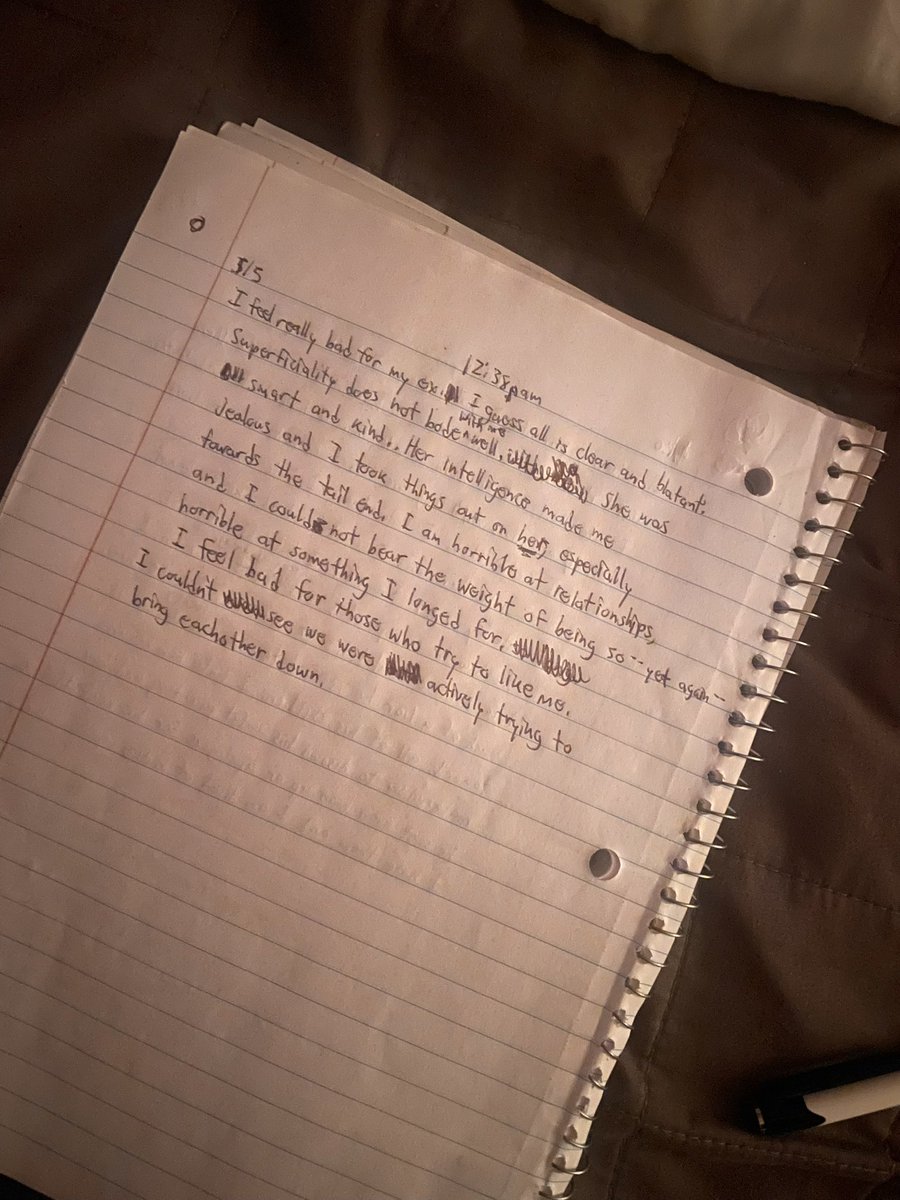 3/5
12:35 am
I feel really bad for my ex. I guess all is clear and blatant.
Superficiality does not bode with me well. She was
smart and kind.. Her intelligence made me
jealous and I took things out on her, especially
towards the tail end. I am horrible at relationships,
and I could not bear the weight of being so -- yet again --
horrible at something I longed for.
I feel bad for those who try to like me.
I couldn't see we were actively trying to
bring eachother down.